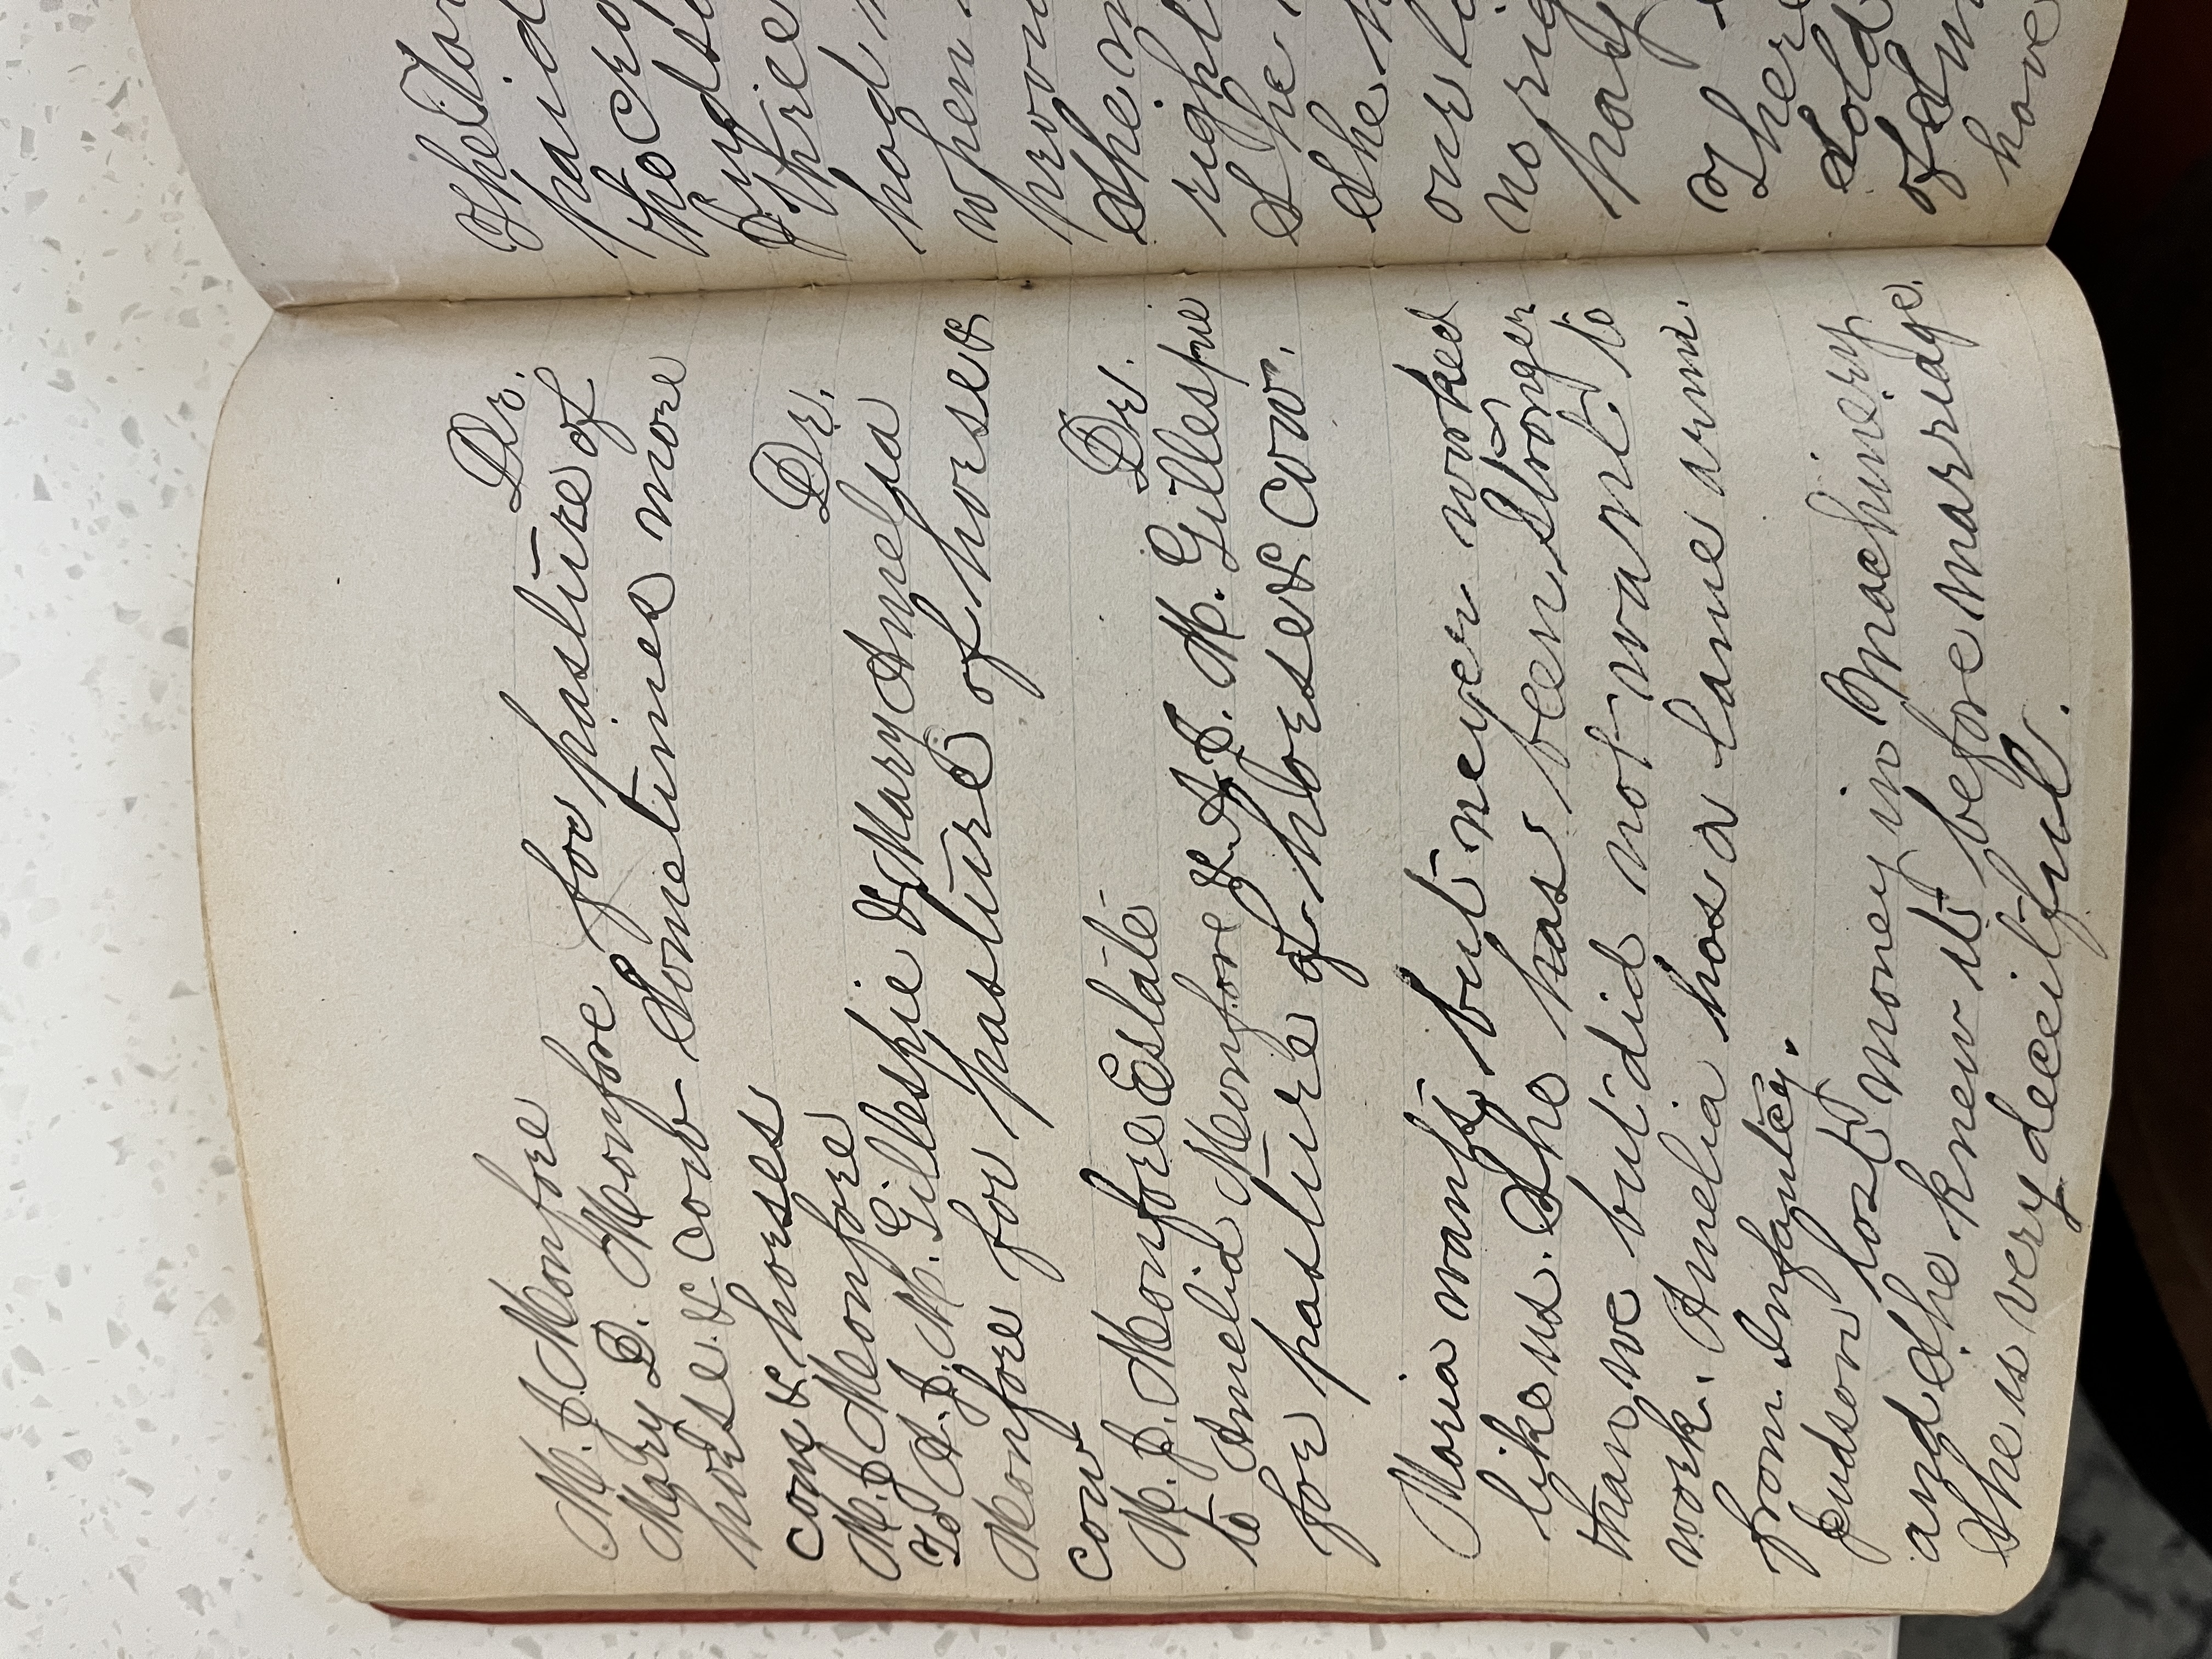 M. J. Monfore Dr.
Mary D. Monfore for pasture of
horse & cow sometimes more
cow & horses
M. J. Monfore Dr.
To A. J. M. Gillespie & Mary Amelia
Monfore for pasture of horse &
cow
M. J. Monfore Estate Dr.
to Amelia Monfore & A. J. M. Gillespie
for pasture of horse & cow.
Maria wants but never worked
like us. She has been stronger
than we but did not want to
work. Amelia has a lame arm
from Infantcy.
Judson lost money in Machinery
and she knew it before marriage.
She is very deceitful.
The
paid
tho
three
had
when
right
She
She
no
There
sold
of
have